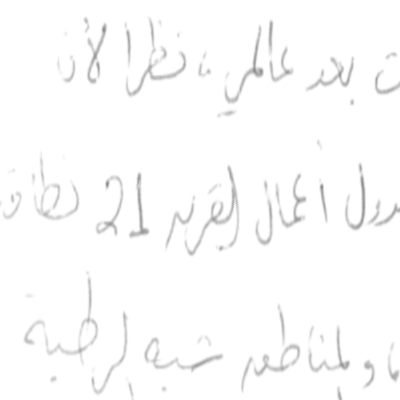 ت بعد عالمي، نظرا لأن
دول أعمال القرن 21 نطاق
و المناطق شبه الرطبة